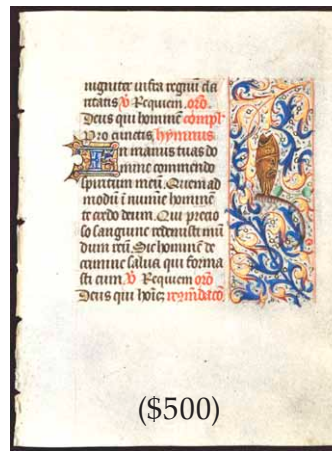 nigniter infra regnū cla
ritatis ℣ Requiem. orō.
Deus qui hominē compl̄
Pro cunctis, hymnus
In manus tuas do
mine commendo
spiritum meū. Quem ad
modū ī nunīe hominē
te credo deum. Qui precio
so sanguine redemisti mū
dum reū. Sic hominē de
crimine salua qui forma
sti eum. ℣ Requiem orō
Deus qui hoīez
($500)